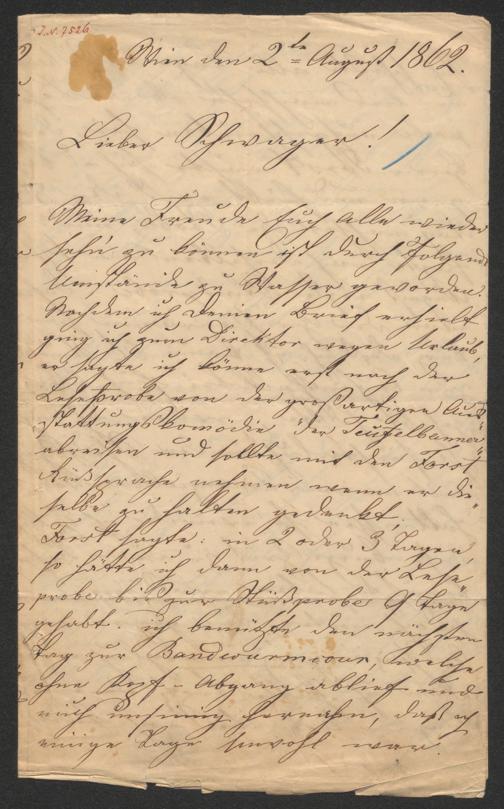 I.N. 7526
Wien den 2te August 1862.
Lieber Schwager!
Meine Freude Euch alle wieder
seh'n zu können ist durch folgende
Umstände zu Wasser geworden.
Nachdem ich Deinen Brief erhielt
ging ich zum Direktor wegen Urlaub,
er sagte ich könne erst nach der
Leseprobe von der großartigen Aus¬
stattungskomödie "der Teufelbanner"
abreisen und sollte mit den Forst
Rücksprache nehmen wenn er die¬
selbe zu halten gedenkt,
Forst sagte: in 2 oder 3 Tagen,
so hätte ich dann von der Lese¬
probe bis zur Stückprobe 9 Tage
gehabt. ich benützte den nächsten
Tag zur Bandwurmcour, welche
ohne Kopf-Abgang ablief und
mich unsinnig hernahm, daß ich
einige Tage unwohl war.